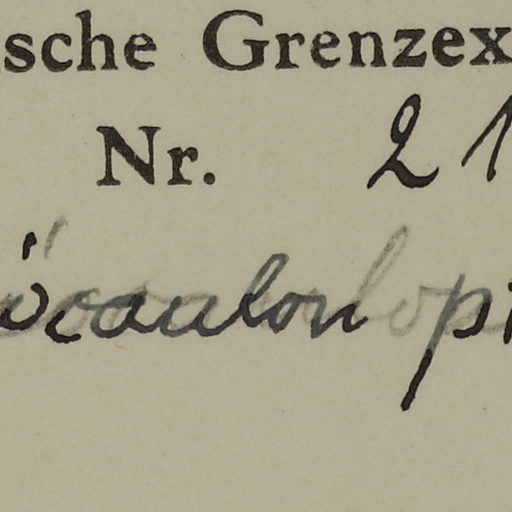 ische Grenzex
Nr. 21
ocaulon pi